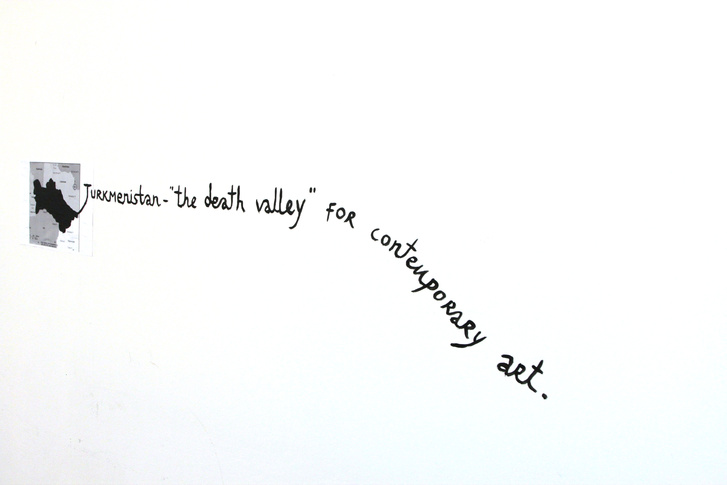 Turkmenistan - "the death valley" FOR contemporary art.